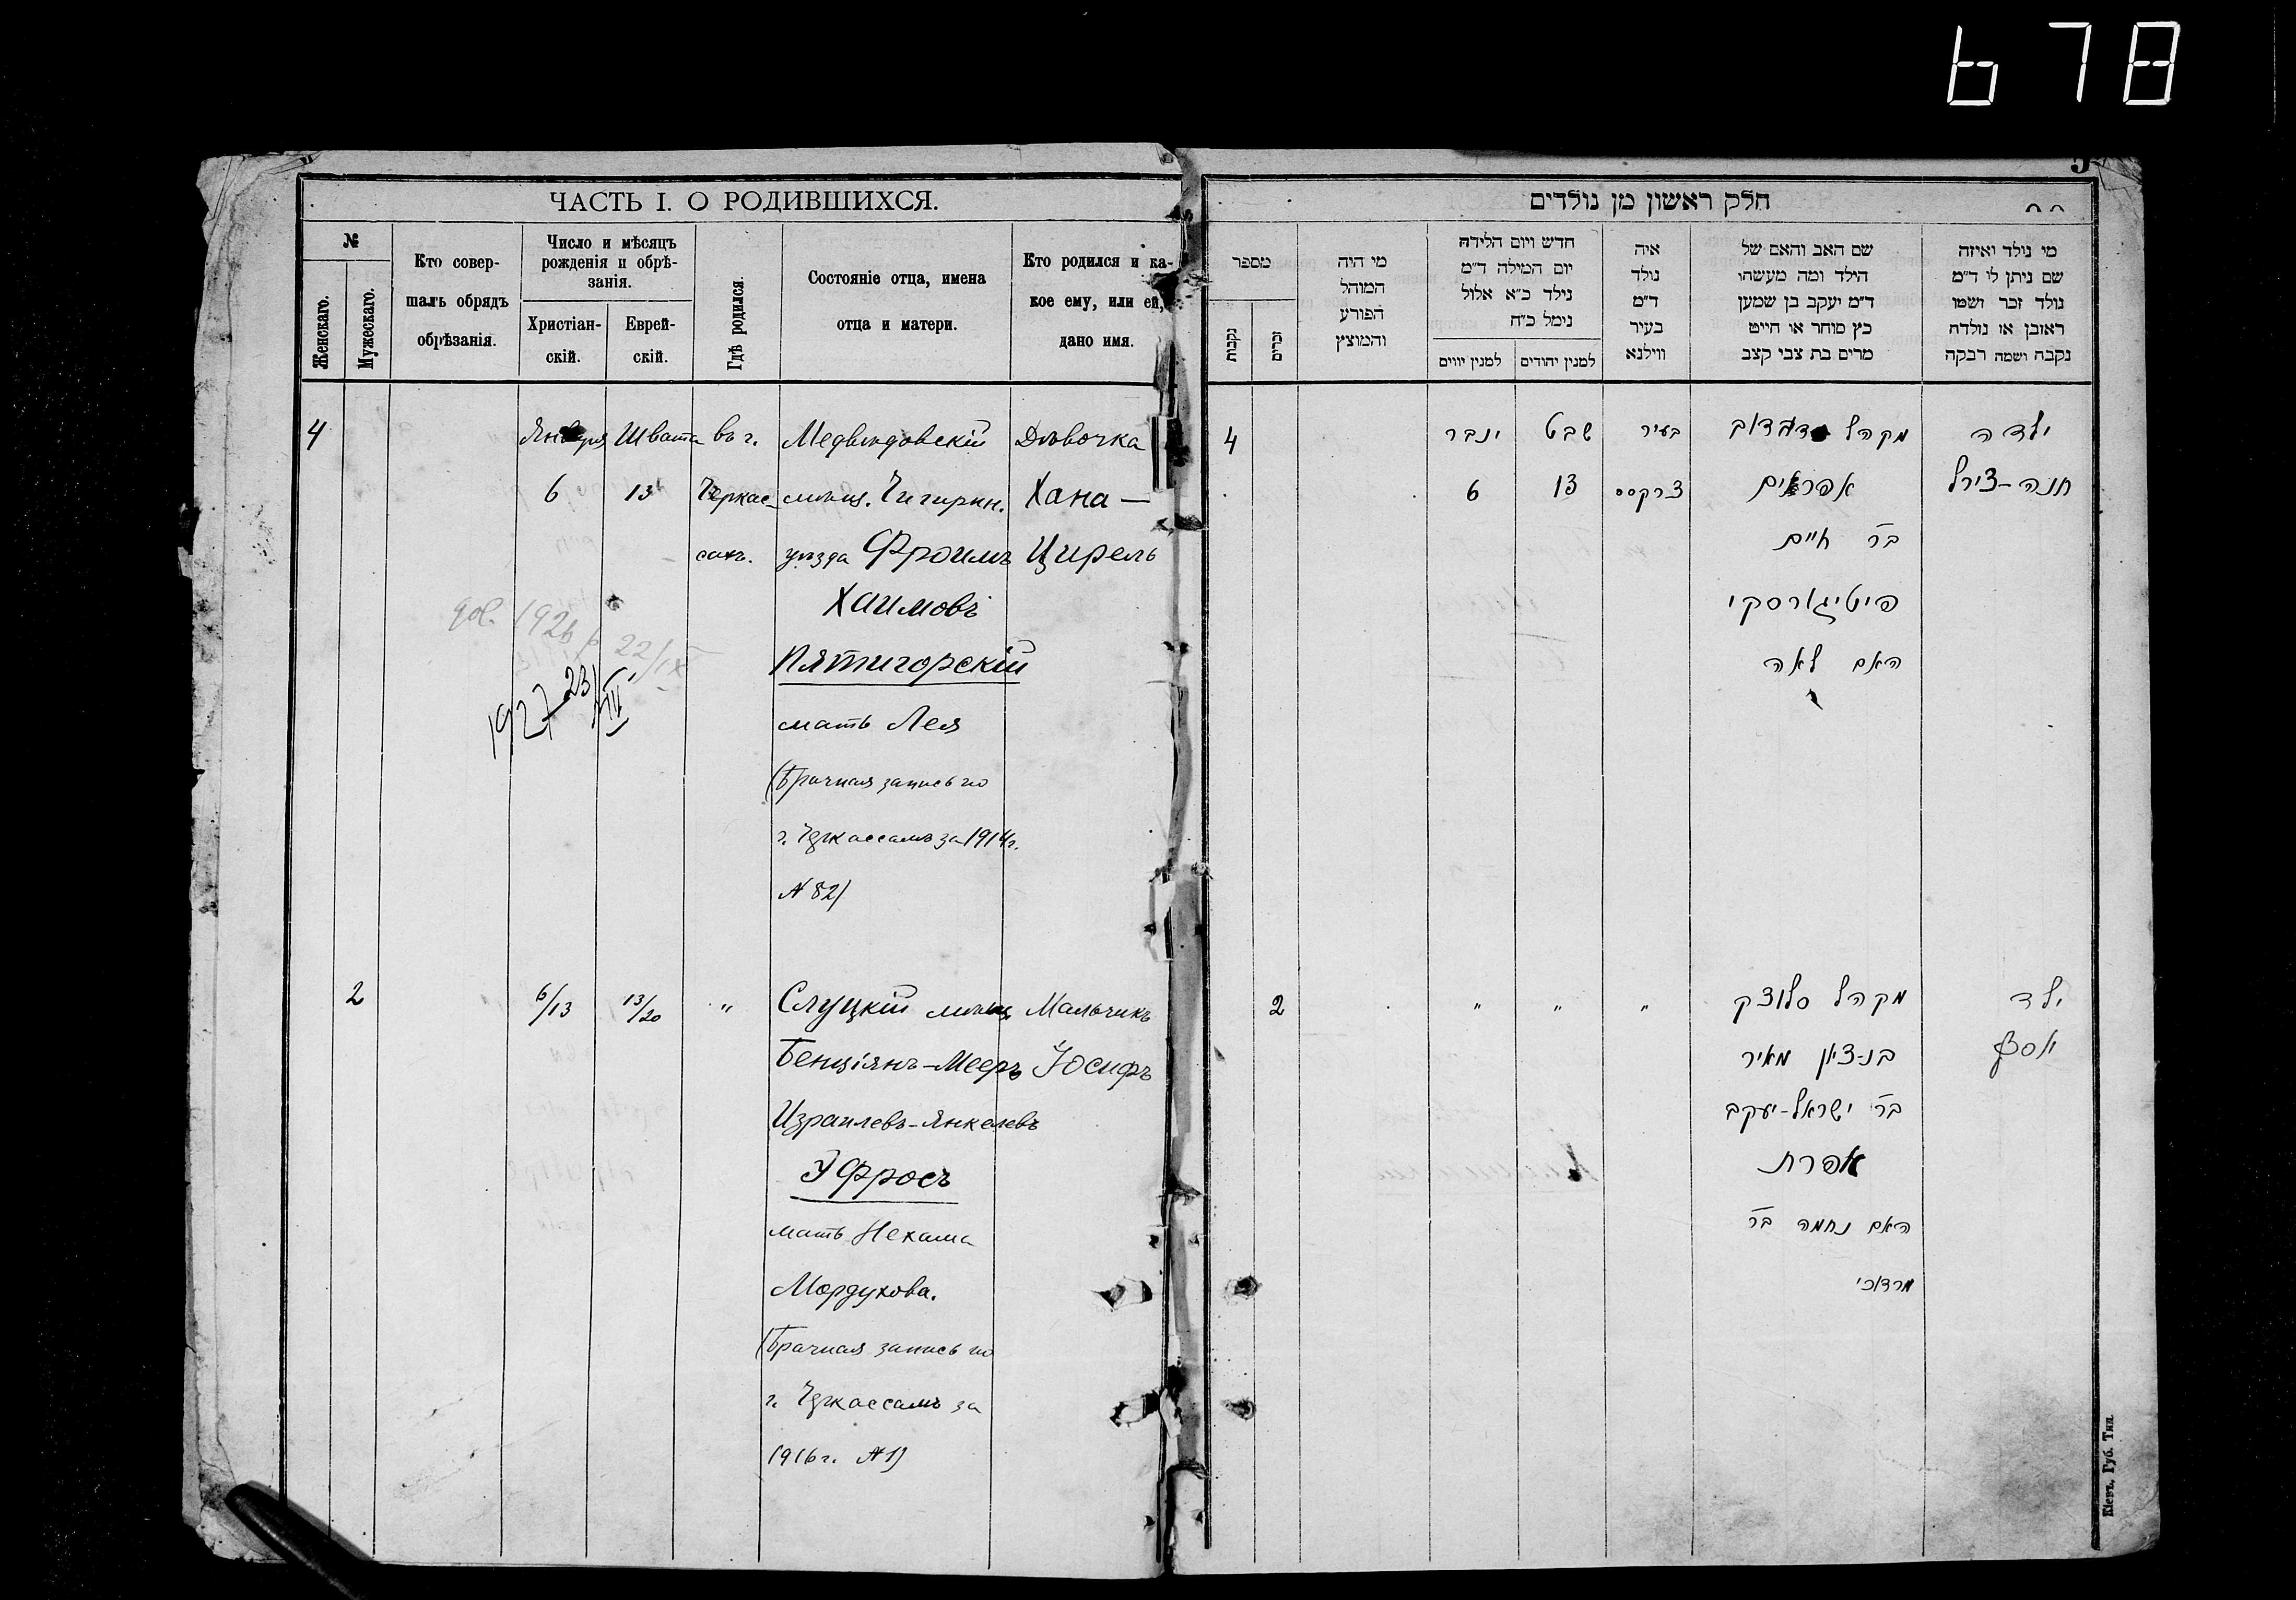 678
5
ЧАСТЬ I. О РОДИВШИХСЯ.
№
Женскаго.
Мужескаго.
Кто совер-
шалъ обрядъ
обрѣзанія.
Число и мѣсяцъ
рожденія и обрѣ-
занія.
Христіан-
скій.
Еврей-
скій.
Гдѣ родился.
Состояніе отца, имена
отца и матери.
Кто родился и ка-
кое ему, или ей,
дано имя.
4
Января
6
Швата
13
въ г.
Черкас-
сахъ.
Медвѣдовскій
мѣщ. Чигирин.
уѣзда Фроимъ
Хаимовъ
Пятигорскій
мать Лея
(Брачная запись по
г. Черкассамъ за 1914 г.
№ 82)
Дѣвочка
Хана —
Цирель
1926 22/IX
1927 23/III
2
6/13
13/20
"
Слуцкій мѣщ.
Бенціянъ-Мееръ
Израилевъ-Янкелевъ
Эфросъ
мать Нехама
Мордухова.
(Брачная запись по
г. Черкассамъ за
1916 г. №1)
Мальчикъ
Іосифъ
חלק ראשון מן נולדים
מספר
נקבות
זכרים
מי היה
המוהל
הפורע
והמוצץ
חדש ויום הלידה
יום המילה ד״מ
נילד כ״א אלול
נימל כ״ח
למנין יווים
למנין יהודים
איה
נולד
ד״מ
בעיר
ווילנא
שם האב והאם של
הילד ומה מעשהו
ד״מ יעקב בן שמען
כץ סוחר או חייט
מרים בת צבי קצב
מי נולד ואיזה
שם ניתן לו ד״מ
נולד זכר ושמו
ראובן או נולדה
נקבה ושמה רבקה
4
ינבר
6
שבט
13
בעיר
צרקסס
מקהל
אפראים
בר חיים
פיטיגורסקי
האם לאה
ילדה
חנה-צירל
2
"
"
"
מקהל סלוצק
בן-ציון מאיר
בר ישראל-יעקב
אפרת
האם נחמה בר
מרדוכי
ילד
יוסף
Кіевъ. Губ. Тип.